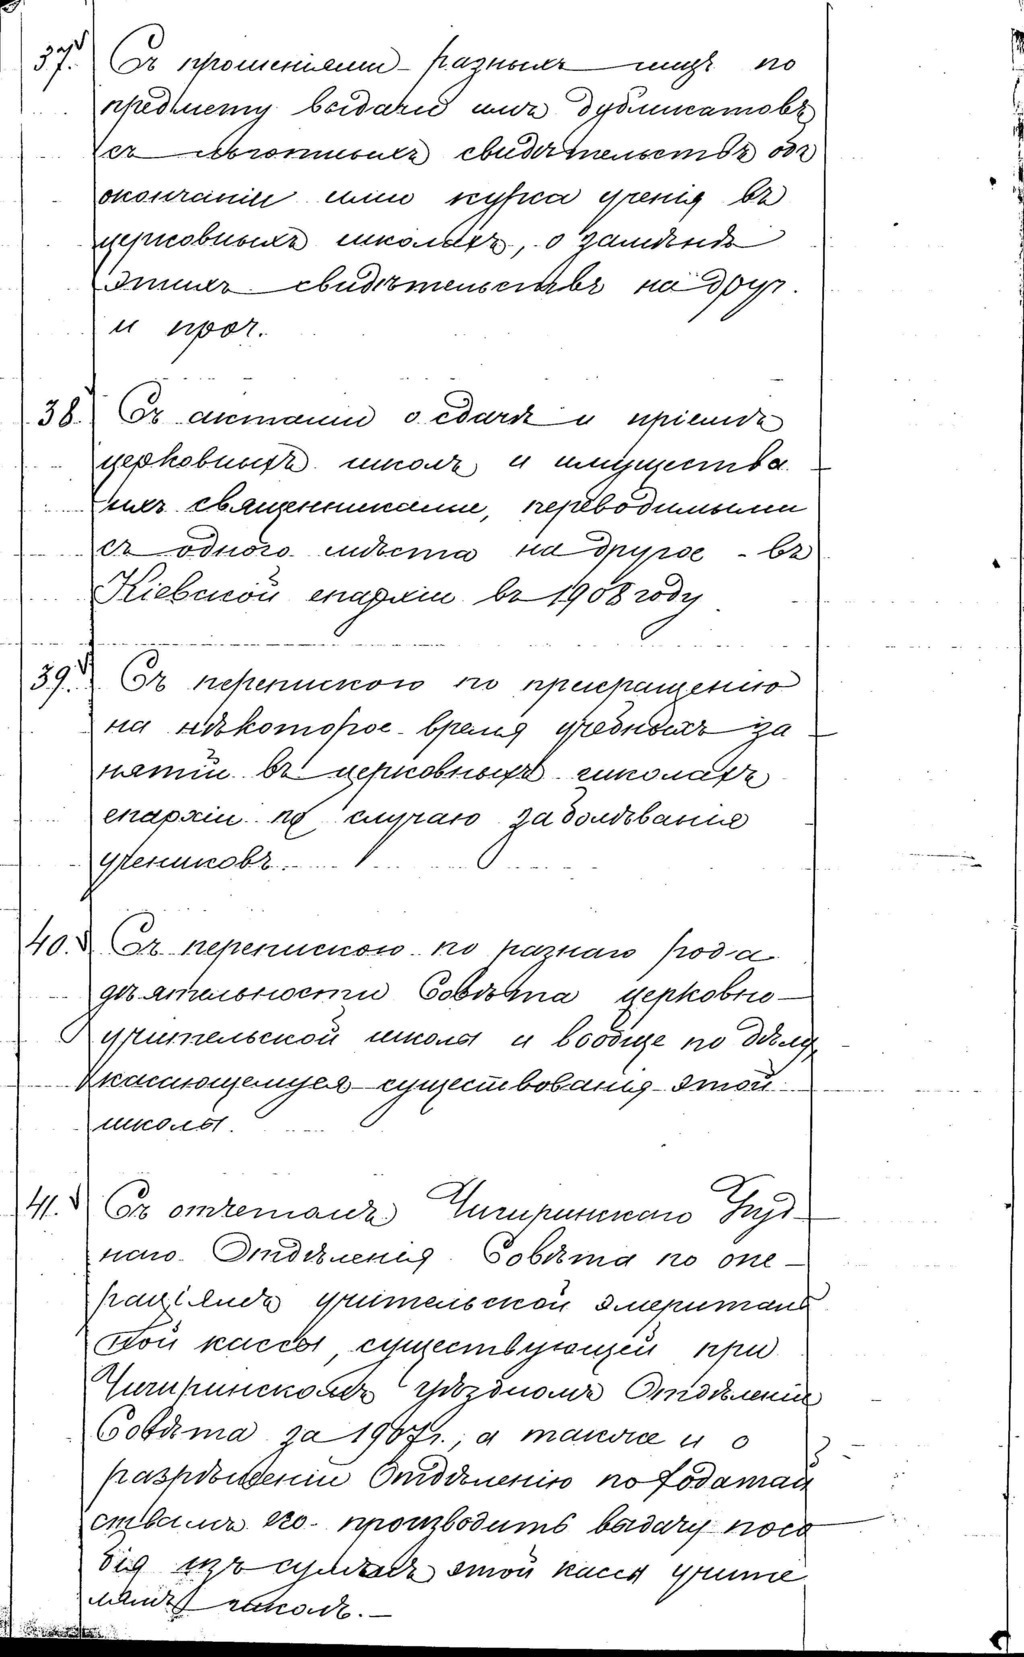 37. Съ прошеніями разныхъ лицъ по
предмету выдачи имъ дубликатовъ
съ льготныхъ свидѣтельствъ объ
окончаніи ими курса ученія въ
церковныхъ школахъ, о замѣнѣ
этихъ свидѣтельствъ на друг.
и проч.
38. Съ актами о сдачѣ и пріемѣ
церковныхъ школъ и имущества
ихъ священниками, переводимыми
съ одного мѣста на другое - въ
Кіевской епархіи въ 1908 году.
39. Съ перепискою по прекращенію
на нѣкоторое время учебныхъ за
нятій въ церковныхъ школахъ
епархіи по случаю заболѣванія
учениковъ.
40. Съ перепискою по разнаго рода
дѣятельности Совѣта церковно-
учительской школы и вообще по дѣлу,
касающемуся существованія этой
школы.
41. Съ отчетомъ Чигиринскаго Уѣзд-
наго Отдѣленія Совѣта по опе-
раціямъ учительской эмериталь
ной кассы, существующей при
Чигиринскомъ уѣздномъ Отдѣленіи
Совѣта за 1907 г., а также и о
разрѣшеніи Отдѣленію по ходатай
ствамъ его производить выдачу посо
бія изъ суммъ этой кассы учите
лямъ школъ.-